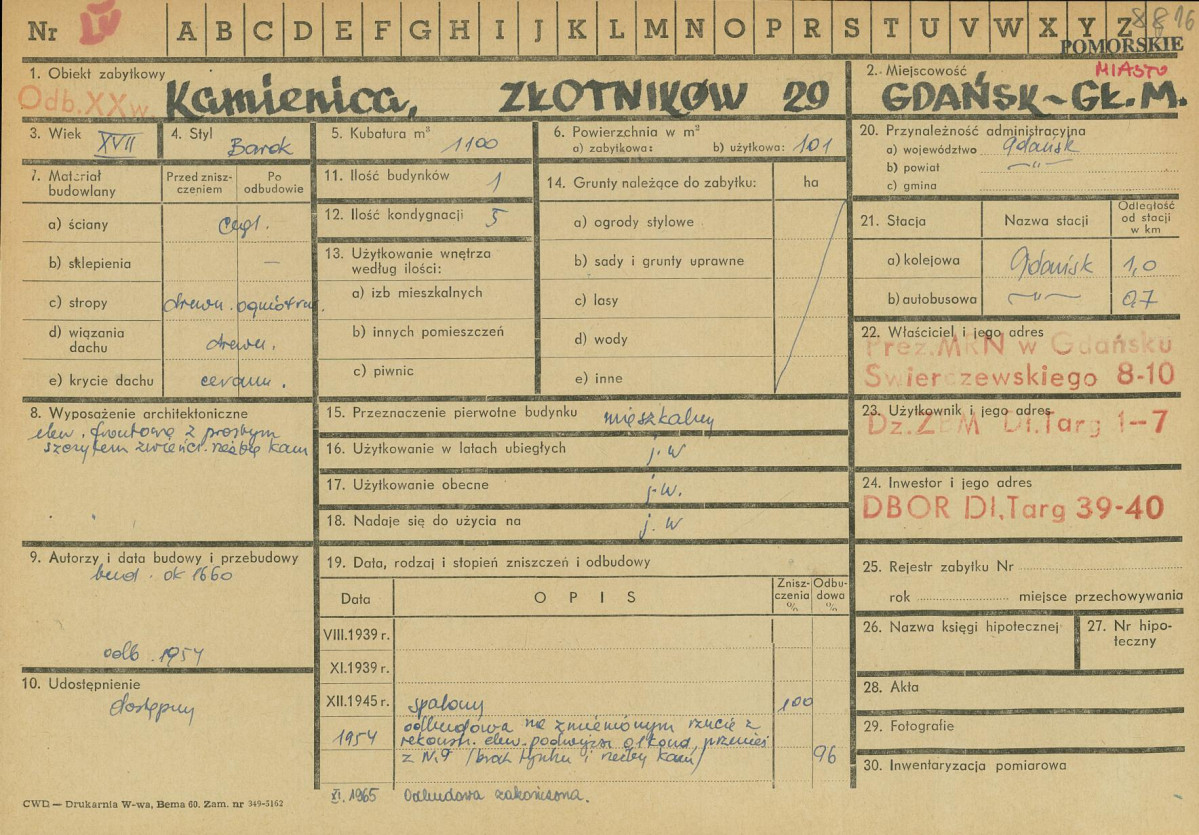 Nr IV A B C D E F G H I J K L M N O P R S T U V W X Y Z 8816
POMORSKIE
1. Obiekt zabytkowy
Odb. XXw.
Kamienica, ZŁOTNIKÓW 29
2. Miejscowość
MIASTO
GDAŃSK-GŁ.M.
3. Wiek XVII
4. Styl Barok
5. Kubatura m³ 1100
6. Powierzchnia w m²
a) zabytkowa: b) użytkowa: 101
7. Materiał budowlany
Przed zniszczeniem
Po odbudowie
a) ściany cegł.
b) sklepienia —
c) stropy drewn. ogniotrw.
d) wiązania dachu drewn.
e) krycie dachu ceram.
8. Wyposażenie architektoniczne
elew. frontowa z prostym
szczytem zwieńcz. rzeźbę kam
9. Autorzy i data budowy i przebudowy
bud. ok 1660
odb. 1954
10. Udostępnienie
dostępny
11. Ilość budynków 1
12. Ilość kondygnacji 5
13. Użytkowanie wnętrza
według ilości:
a) izb mieszkalnych
b) innych pomieszczeń
c) piwnic
14. Grunty należące do zabytku: ha
a) ogrody stylowe
b) sady i grunty uprawne
c) lasy
d) wody
e) inne
15. Przeznaczenie pierwotne budynku mieszkalny
16. Użytkowanie w latach ubiegłych j.w
17. Użytkowanie obecne j.w.
18. Nadaje się do użycia na j.w
19. Data, rodzaj i stopień zniszczeń i odbudowy
Data OPIS Zniszczenia % Odbudowa %
VIII.1939 r.
XI.1939 r.
XII.1945 r. spalony 100
1954 odbudowa na zmienionym rzucie z
rekonstr. elew. podwyższ. o 1 kond. przenies.
z N.9 (brak tynku i rzeźby kam) 96
XI. 1965 Odbudowa zakończona.
20. Przynależność administracyjna
a) województwo Gdańsk
b) powiat —"—
c) gmina
21. Stacja Nazwa stacji Odległość od stacji w km
a) kolejowa Gdańsk 1,0
b) autobusowa —"— 0,7
22. Właściciel i jego adres
Prez.MRN w Gdańsku
Swierczewskiego 8-10
23. Użytkownik i jego adres
Dz.ZBM Dł.Targ 1-7
24. Inwestor i jego adres
DBOR Dł.Targ 39-40
25. Rejestr zabytku Nr
rok miejsce przechowywania
26. Nazwa księgi hipotecznej
27. Nr hipoteczny
28. Akta
29. Fotografie
30. Inwentaryzacja pomiarowa
CWD — Drukarnia W-wa, Bema 60. Zam. nr 349-5162